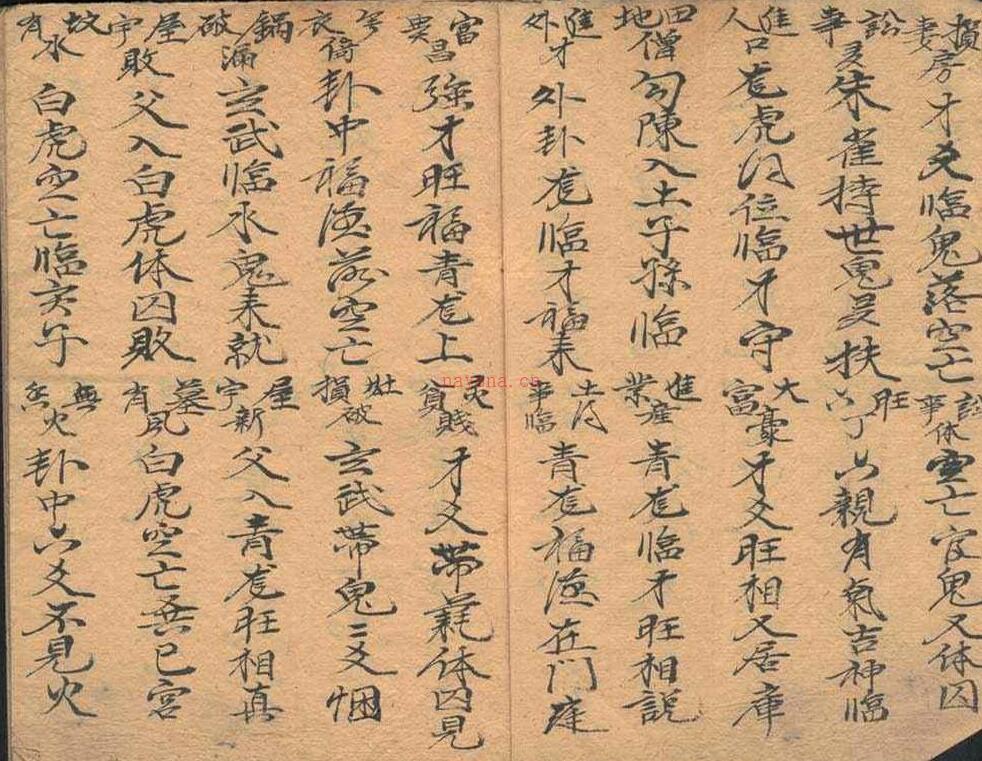 損妻房 才爻臨鬼落空亡 訟事休 空亡官鬼又休囚
訟事 朱雀持世鬼爻扶 旺六丁 六親有氣吉神臨
進人口 龙虎月位臨才守 大富豪 才爻旺相又居庫
田地僧 勾陳入土子孫臨 進業産 青龙臨才旺相說
進外才 外卦龙臨才福来 事臨 青龙福德在门庭
富貴昌 強才旺福青龙上 貧賤 才爻帶耗休囚見
衣 卦中福德落空亡 灶損破 玄武帶鬼二爻烟
鍋破漏 玄武臨水鬼来就 屋宇新 父入青龙旺相真
屋宇敗 父入白虎休囚敗 墓有風 白虎空亡巽巳宮
故有水 白虎空亡臨亥子 無香火 卦中六爻不見火